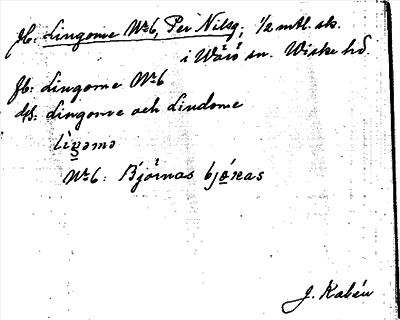 Jb: Lingome No 6, Per Nilsg; 1/2 mtl. sk.
i Wärö sn. Wiske hd.
Jb: Lingome No 6
ds: Lingome och Lindome
ligəmə
No 6: Björnas bjönas
J. Kalén